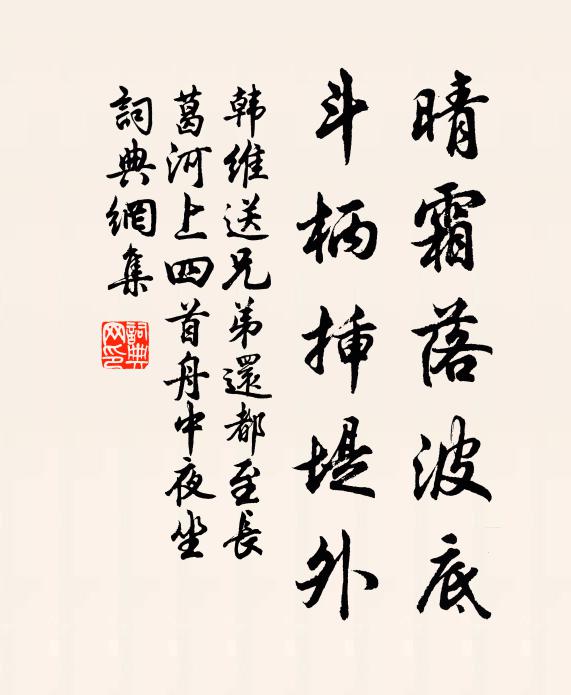 晴霜落波底
斗柄插堤外
韩維送兄弟還都至長
葛河上四首舟中夜坐
詞典網集
詞典網印